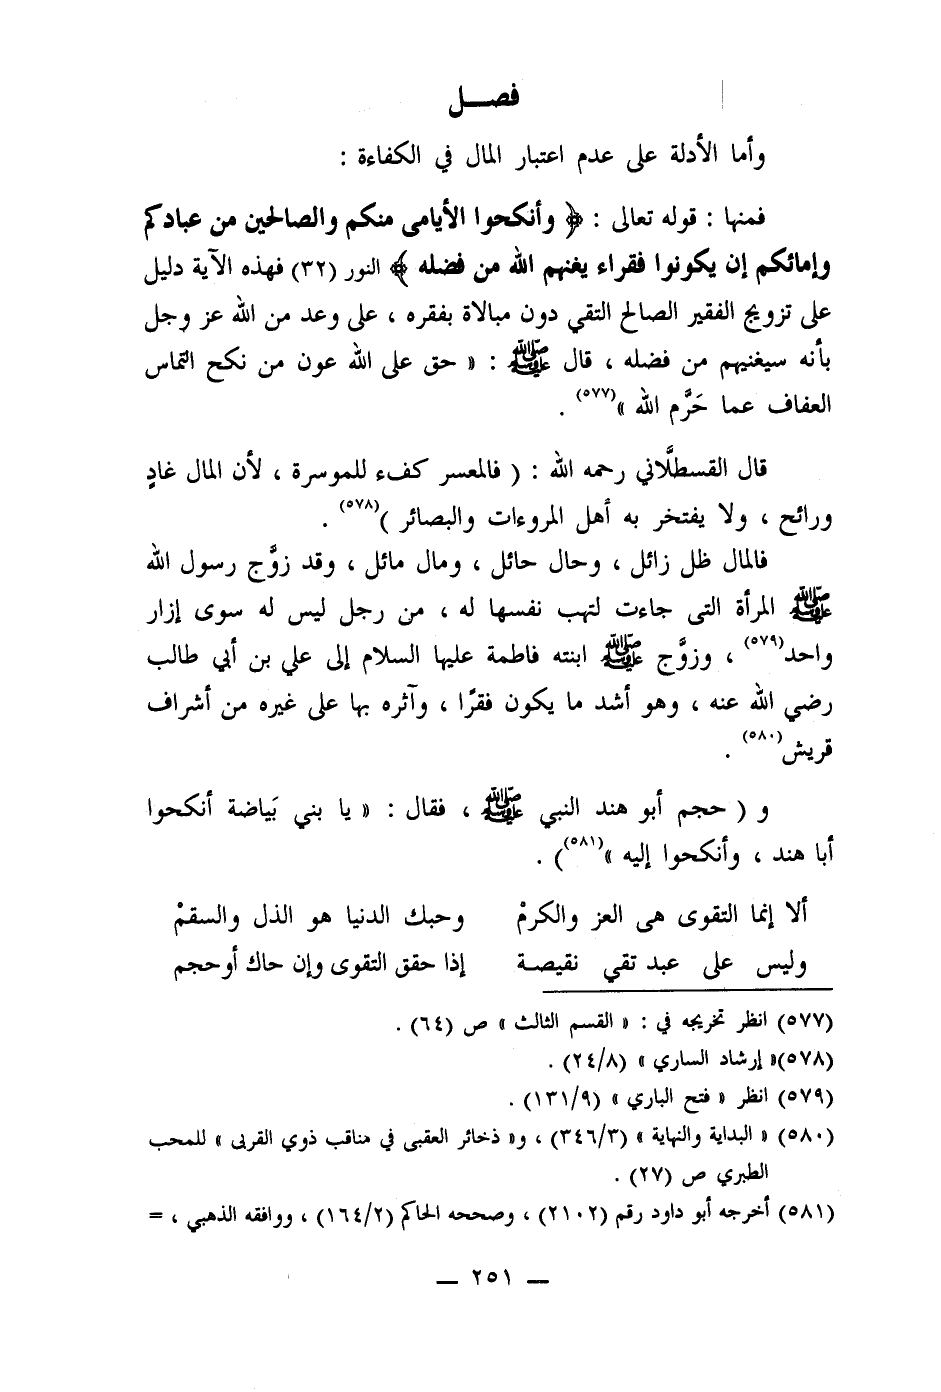 فصــل
وأما الأدلة على عدم اعتبار المال في الكفاءة :
فمنها : قوله تعالى : ﴿ وأنكحوا الأيامى منكم والصالحين من عبادكم
وإمائكم إن يكونوا فقراء يغنهم الله من فضله ﴾ النور (٣٢) فهذه الآية دليل
على تزويج الفقير الصالح التقي دون مبالاة بفقره ، على وعد من الله عز وجل
بأنه سيغنيهم من فضله ، قال ﷺ : « حق على الله عون من نكح التماس
العفاف عما حَرَّم الله »(٥٧٧) .
قال القسطلَّاني رحمه الله : ( فالمعسر كفء للموسرة ، لأن المال غادٍ
ورائح ، ولا يفتخر به أهل المروءات والبصائر )(٥٧٨) .
فالمال ظل زائل ، وحال حائل ، ومال مائل ، وقد زوَّج رسول الله
ﷺ المرأة التى جاءت لتهب نفسها له ، من رجل ليس له سوى إزار
واحد(٥٧٩) ، وزوَّج ﷺ ابنته فاطمة عليها السلام إلى علي بن أبي طالب
رضي الله عنه ، وهو أشد ما يكون فقرًا ، وآثره بها على غيره من أشراف
قريش(٥٨٠) .
و ( حجم أبو هند النبي ﷺ ، فقال : « يا بني بَياضة أنكحوا
أبا هند ، وأنكحوا إليه »(٥٨١)) .
ألا إنما التقوى هى العز والكرمْ وحبك الدنيا هو الذل والسقمْ
وليس على عبد تقي نقيصة إذا حقق التقوى وإن حاك أوحجم
(٥٧٧) انظر تخريجه في : « القسم الثالث » ص (٦٤) .
(٥٧٨)« إرشاد الساري » (٢٤/٨) .
(٥٧٩) انظر « فتح الباري » (١٣١/٩) .
(٥٨٠) « البداية والنهاية » (٣٤٦/٣) ، و« ذخائر العقبى في مناقب ذوي القربى » للمحب
الطبري ص (٢٧) .
(٥٨١) أخرجه أبو داود رقم (٢١٠٢) ، وصححه الحاكم (١٦٤/٢) ، ووافقه الذهبي ، =
— ٢٥١ —